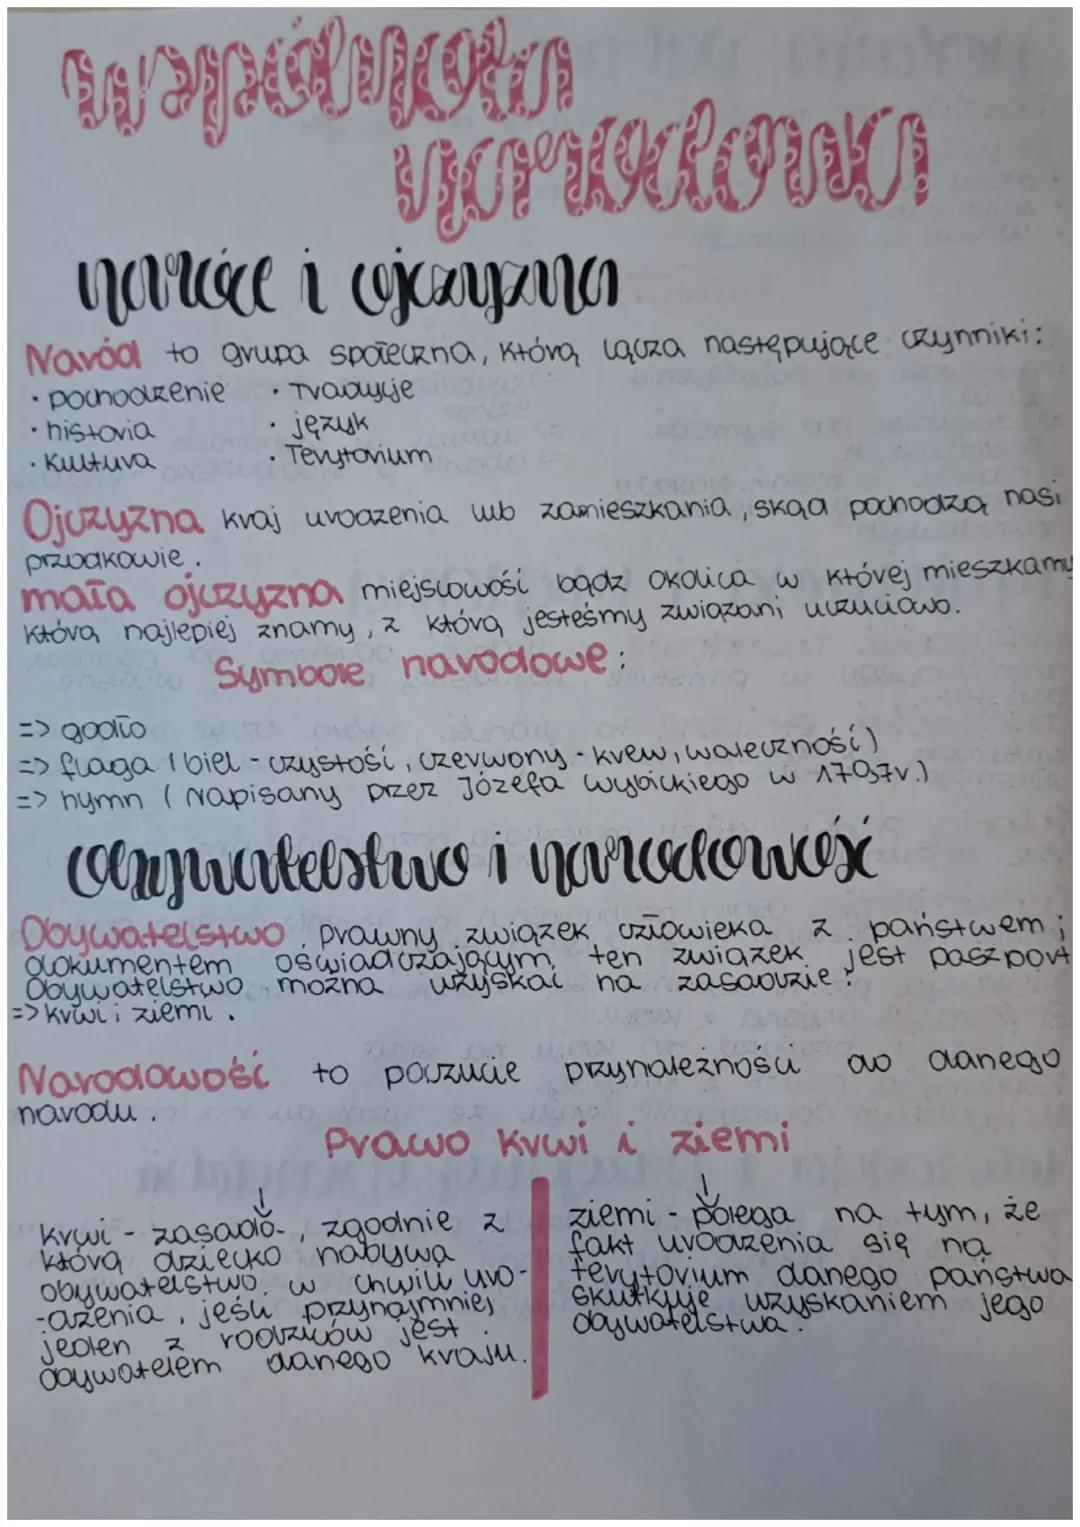 wspólnota
narodowa
naród i ojczyzna
Naród to grupa społeczna, którą łącza następujące czynniki:
• pochodzenie • Tradycje
• historia • język
• Kultura • Terytorium
Ojczyzna kraj urodzenia lub zamieszkania, skąd pochodzą nasi
przodkowie.
mała ojczyzna miejscowość bądz okolica w której mieszkamy
którą najlepiej znamy, z którą jesteśmy związani uczuciowo.
Symbole narodowe:
=> godło
=> flaga (biel - czystość, czerwony - krew, waleczność)
=> hymn (Napisany przez Józefa wybickiego w 1797r.)
obywatelstwo i narodowość
Obywatelstwo, prawny związek człowieka z państwem;
dokumentem oświadczającym, ten związek jest paszport
Obywatelstwo można uzyskać na zasadzie:
=> krwi i ziemi.
Narodowość to poczucie przynależności do danego
narodu.
Prawo krwi i ziemi
krwi - zasada, zgodnie z
którą dziecko nabywa
obywatelstwo w chwili uro-
-dzenia, jeśli przynajmniej
jeden z rodziców jest
obywatelem danego kraju.
ziemi - polega na tym, że
fakt urodzenia się na
terytorium danego państwa
skutkuje uzyskaniem jego
obywatelstwa.